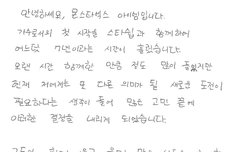 안녕하세요, 몬스타엑스 아이엠입니다.
가수로서의 첫 시작을 스타쉽과 함께하여
어느덧 7년이라는 시간이 흘렀습니다.
오랜 시간 함께한 만큼 정도 많이 들었지만
현재 저에게는 또 다른 의미가 될 새로운 도전이
필요하다는 생각이 들어 많은 고민 끝에
이러한 결정을 내리게 되었습니다.